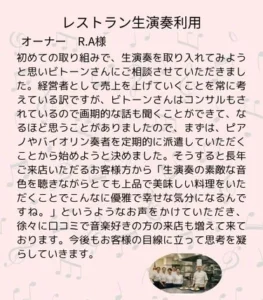 レストラン生演奏利用
オーナー　R.A様
初めての取り組みで、生演奏を取り入れてみよう
と思いビトーンさんにご相談させていただきまし
た。経営者として売上を上げていくことを常に考
えている訳ですが、ビトーンさんはコンサルもさ
れているので画期的な話も聞くことができて、な
るほど思うことがありましたので、まずは、ピア
ノやバイオリン奏者を定期的に派遣していただく
ことから始めようと決めました。そうすると長年
ご来店いただだるお客様方から「生演奏の素敵な音
色を聴きながらとても上品で美味しい料理をいた
だくことでこんなに優雅で幸せな気分になるんで
すね。」というようなお声をかけていただき、
徐々に口コミで音楽好きの方の来店も増えて来て
おります。今後もお客様の目線に立って思考を凝
らしていきます。